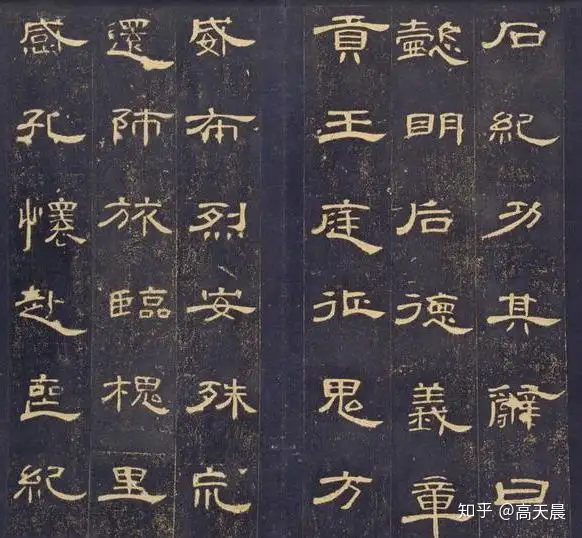 石紀功其辭曰
懿明后德義章
貢王庭征鬼方
威布烈安殊荒
還師旅臨槐里
感孔懷赴喪紀
知乎 @高天晨